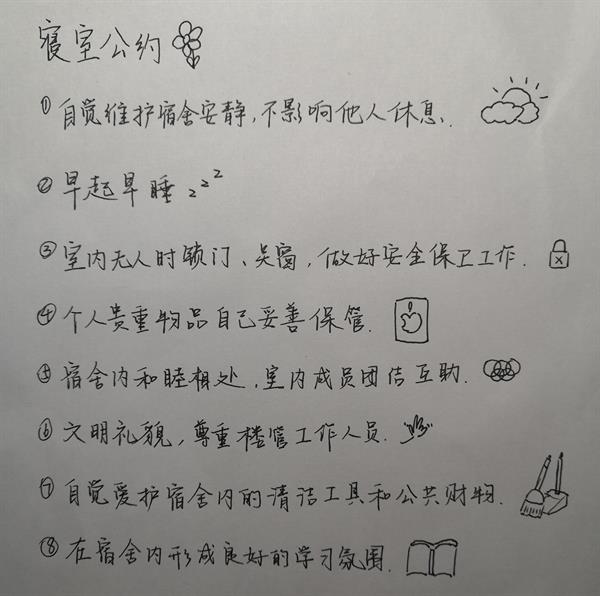 寝室公约
①自觉维护宿舍安静,不影响他人休息.
②早起早睡 zzz
③室内无人时锁门、关窗,做好安全保卫工作.
④个人贵重物品自己妥善保管.
⑤宿舍内和睦相处,室内成员团结互助.
⑥文明礼貌,尊重楼管工作人员.
⑦自觉爱护宿舍内的清洁工具和公共财物.
⑧在宿舍内形成良好的学习氛围.